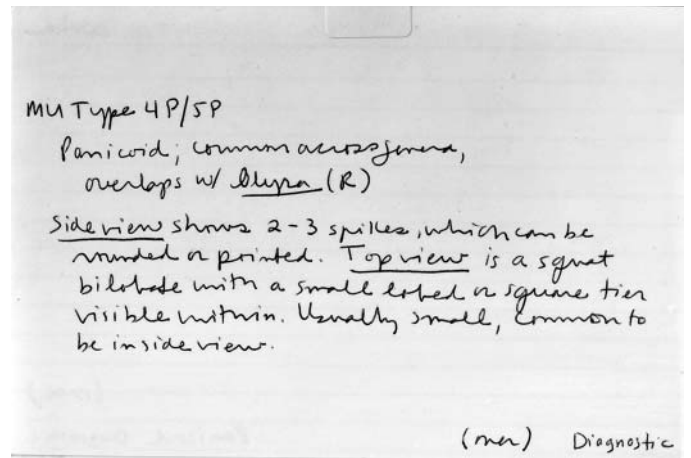 MU Type 4P/5P
Panicoid; common across genera,
overlaps w/ Olyra (R)
Side view shows 2-3 spikes, which can be
rounded or pointed. Top view is a squat
bilobate with a small lobed or square tier
visible within. Usually small, common to
be in side view.
(over) Diagnostic